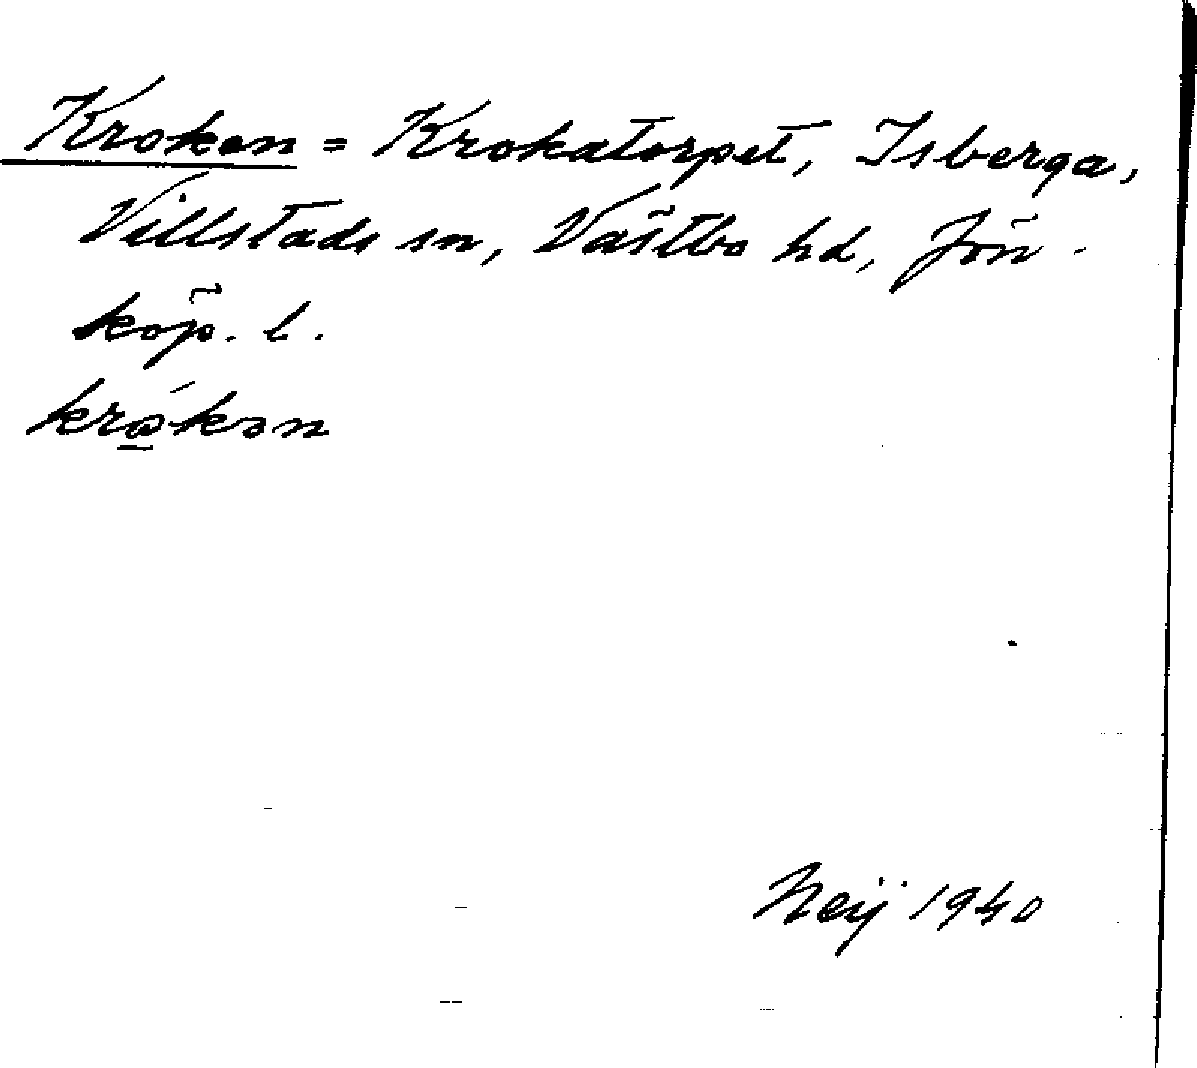 Kroken = Krokatorpet, Isberga,
Villstads sn, Västbo hd, Jön-
köp. l.
kro̲´kən
Neij 1940